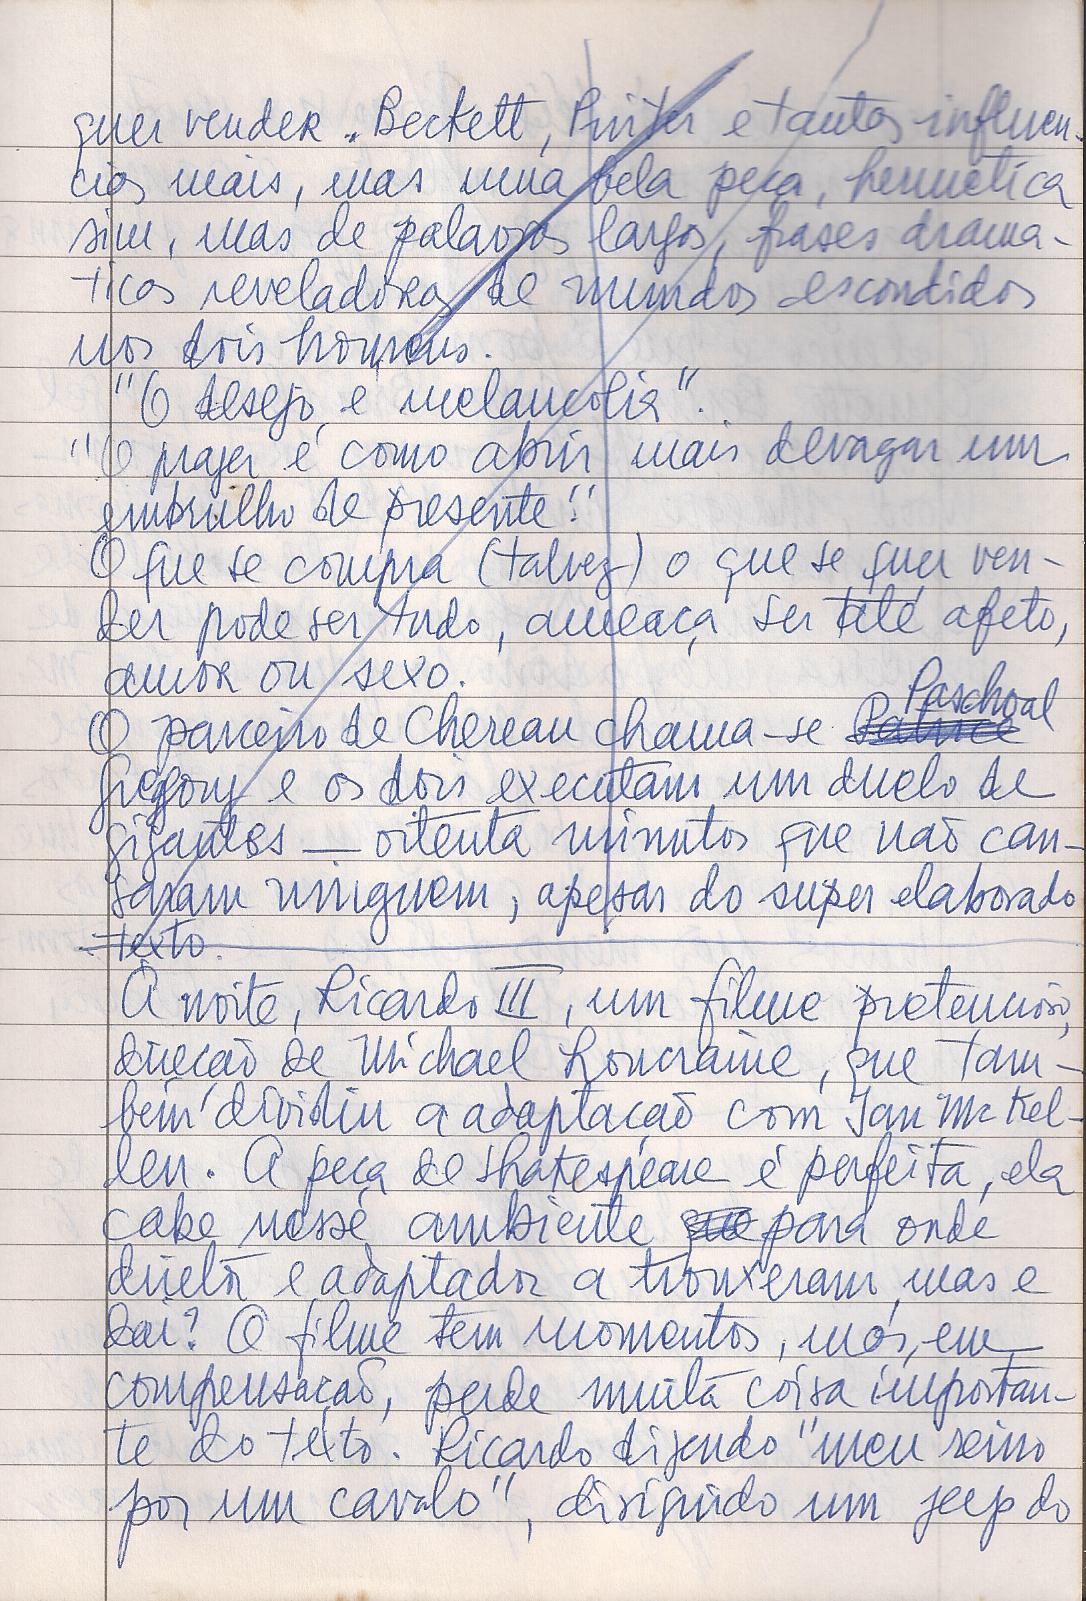 quer vender. Beckett, Pinter e tantas influen-
cias mais, mas uma bela peça, hermética
sim, mas de palavras largas, frases drama-
ticas reveladoras de mundos escondidos
nos dois homens.
"O desejo, e melancolia".
"O prazer é como abrir mais devagar um
embrulho de presente!"
O que se compra (talvez) o que se quer ven-
der pode ser tudo, ameaça ser até afeto,
amor ou sexo.
O parceiro de Chereau chama-se Paschoal
Gregory e os dois executam um duelo de
gigantes — oitenta minutos que não can-
saram ninguem, apesar do super elaborado
texto.
À noite, Ricardo III, um filme pretencioso,
direcão de Michael Loncraine, que tam-
bém dividiu a adaptacão com Ian McKel-
len. A peça de Shakespeare é perfeita, ela
cabe nesse ambiente para onde
diretor e adaptador a trouxeram, mas e
dai? O filme tem momentos, mas, em
compensacão, perde muita coisa importan-
te do texto. Ricardo dizendo "meu reino
por um cavalo", dirigindo um jeep do